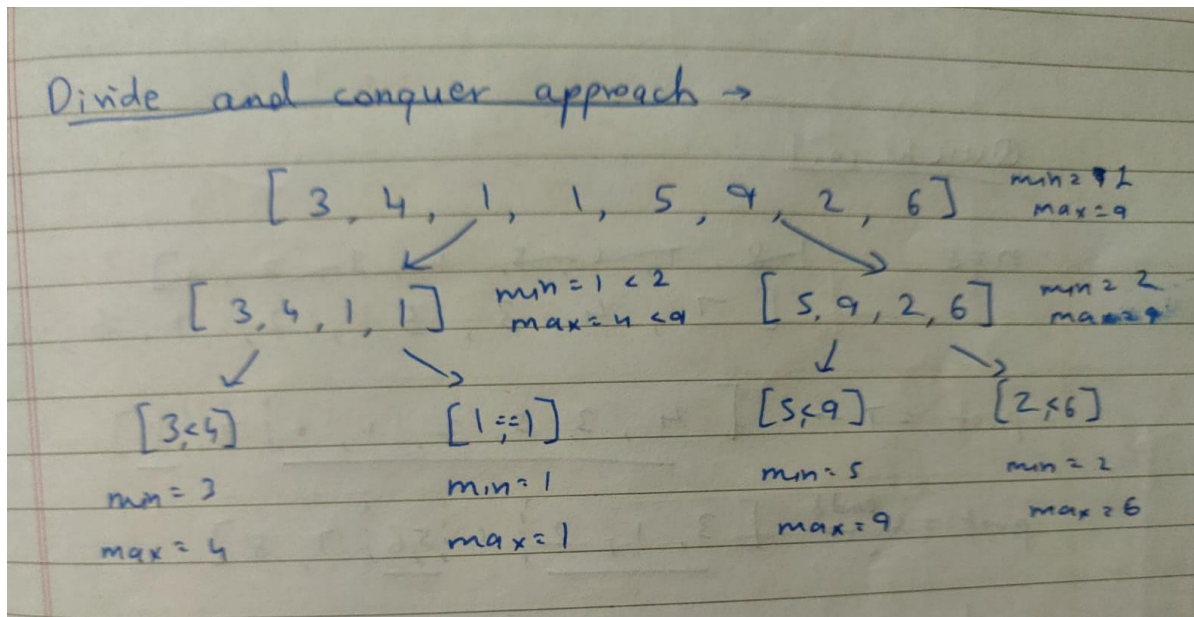 Divide and conquer approach →
[3, 4, 1, 1, 5, 9, 2, 6] min = 1
max = 9
[3, 4, 1, 1] min = 1 < 2 [5, 9, 2, 6] min = 2
max = 4 < 9 max = 9
[3,<4] [1,==1] [5,<9] [2,<6]
min = 3 min = 1 min = 5 min = 2
max = 4 max = 1 max = 9 max = 6